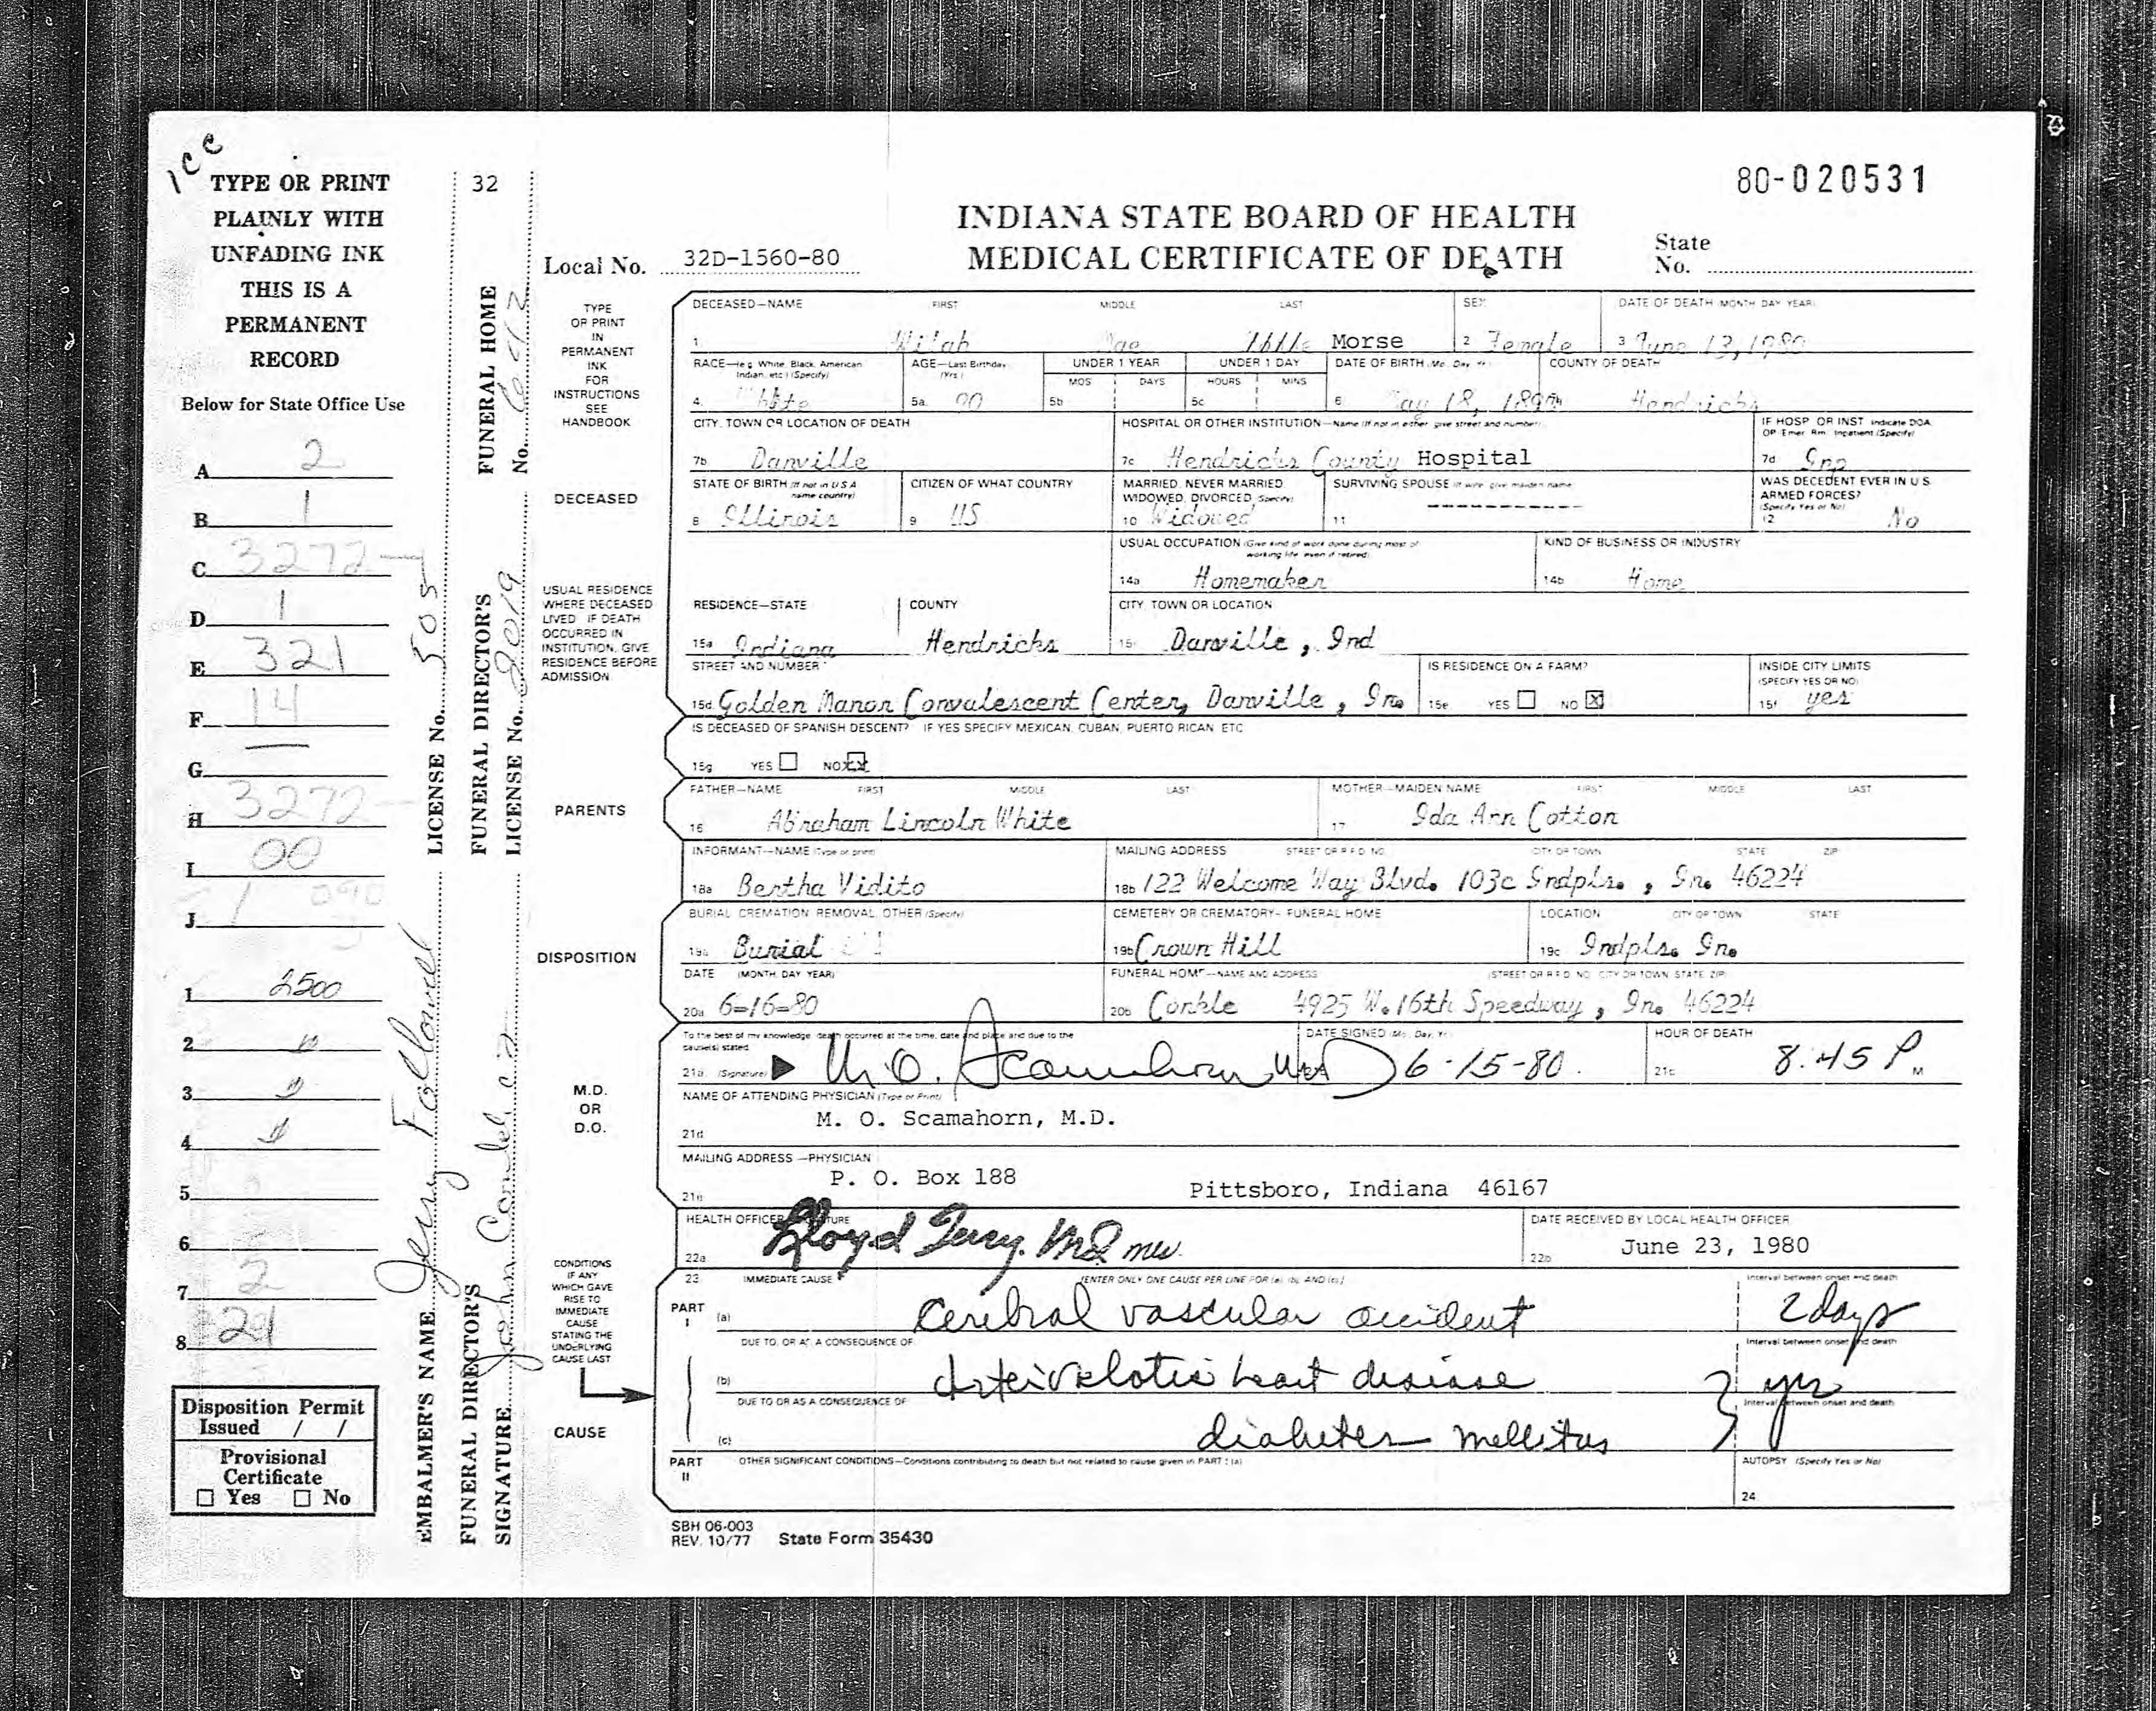 1CC
TYPE OR PRINT
PLAINLY WITH
UNFADING INK
THIS IS A
PERMANENT
RECORD
Below for State Office Use
A. 2
B. 1
C. 3272
D. 1
E. 321
F. 14
G. —
H. 3272
I. 00
J. 1 090
1. 2500
2.
3.
4.
5.
6.
7. 2
8. 29
Disposition Permit
Issued / /
Provisional
Certificate
☐ Yes ☐ No
EMBALMER'S NAME Jerry Followell LICENSE No. 505
32
FUNERAL DIRECTOR'S FUNERAL DIRECTOR'S FUNERAL HOME
SIGNATURE John Conkle LICENSE No. 2019 No.
80-020531
INDIANA STATE BOARD OF HEALTH
MEDICAL CERTIFICATE OF DEATH
Local No. 32D-1560-80
State
No.
TYPE
OR PRINT
IN
PERMANENT
INK
FOR
INSTRUCTIONS
SEE
HANDBOOK
DECEASED—NAME FIRST MIDDLE LAST SEX DATE OF DEATH (MONTH DAY YEAR)
1. Mae Morse 2 Female 3 June 13, 1980
RACE—(e.g. White, Black, American Indian, etc.) (Specify) AGE—Last Birthday (Yrs.) UNDER 1 YEAR UNDER 1 DAY DATE OF BIRTH (Mo., Day, Yr.) COUNTY OF DEATH
MOS DAYS HOURS MINS
4. White 5a. 90 5b 5c 6. May 18, Hendricks
CITY, TOWN OR LOCATION OF DEATH HOSPITAL OR OTHER INSTITUTION—Name (If not in either, give street and number) IF HOSP. OR INST. Indicate DOA, OP. Emer. Rm., Inpatient (Specify)
7b Danville 7c Hendricks County Hospital 7d Inp
DECEASED
STATE OF BIRTH (If not in U.S.A. name country) CITIZEN OF WHAT COUNTRY MARRIED, NEVER MARRIED WIDOWED, DIVORCED (Specify) SURVIVING SPOUSE (If wife, give maiden name) WAS DECEDENT EVER IN U.S. ARMED FORCES? (Specify Yes or No)
8 Illinois 9 US 10 Widowed 11 ----------- 12 No
USUAL OCCUPATION (Give kind of work done during most of working life, even if retired) KIND OF BUSINESS OR INDUSTRY
14a Homemaker 14b Home
USUAL RESIDENCE
WHERE DECEASED
LIVED. IF DEATH
OCCURRED IN
INSTITUTION, GIVE
RESIDENCE BEFORE
ADMISSION.
RESIDENCE—STATE COUNTY CITY, TOWN OR LOCATION
15a Indiana Hendricks 15c Danville, Ind
STREET AND NUMBER IS RESIDENCE ON A FARM? INSIDE CITY LIMITS (SPECIFY YES OR NO)
15d Golden Manor Convalescent Center, Danville, In. 15e YES ☐ NO ☒ 15f yes
IS DECEASED OF SPANISH DESCENT? IF YES SPECIFY MEXICAN, CUBAN, PUERTO RICAN, ETC
15g YES ☐ NO ☒
PARENTS
FATHER—NAME FIRST MIDDLE LAST MOTHER—MAIDEN NAME FIRST MIDDLE LAST
16 Abraham Lincoln White 17 Ida Ann Cotton
INFORMANT—NAME (Type or print) MAILING ADDRESS STREET OR R.F.D. NO. CITY OR TOWN STATE ZIP
18a Bertha Vidito 18b 122 Welcome Way Blvd. 103c Indpls., In. 46224
DISPOSITION
BURIAL, CREMATION, REMOVAL, OTHER (Specify) CEMETERY OR CREMATORY- FUNERAL HOME LOCATION CITY OR TOWN STATE
19a Burial 19b Crown Hill 19c Indpls. In.
DATE (MONTH, DAY, YEAR) FUNERAL HOME—NAME AND ADDRESS (STREET OR R.F.D. NO. CITY OR TOWN, STATE, ZIP)
20a 6-16-80 20b Conkle 4925 W. 16th Speedway, In. 46224
M.D.
OR
D.O.
To the best of my knowledge, death occurred at the time, date and place and due to the cause(s) stated DATE SIGNED (Mo., Day, Yr.) HOUR OF DEATH
21a. (Signature) M. O. Scamahorn MD 6-15-80. 21c 8:45 P M
NAME OF ATTENDING PHYSICIAN (Type or Print)
21d M. O. Scamahorn, M.D.
MAILING ADDRESS—PHYSICIAN
21e P. O. Box 188 Pittsboro, Indiana 46167
HEALTH OFFICER SIGNATURE DATE RECEIVED BY LOCAL HEALTH OFFICER
22a Lloyd Terry. MD mw. 22b June 23, 1980
CONDITIONS
IF ANY
WHICH GAVE
RISE TO
IMMEDIATE
CAUSE
STATING THE
UNDERLYING
CAUSE LAST
CAUSE
23 IMMEDIATE CAUSE (ENTER ONLY ONE CAUSE PER LINE FOR (a), (b), AND (c)) Interval between onset and death
PART I (a) Cerebral vascular accident 2 days
DUE TO, OR AS A CONSEQUENCE OF Interval between onset and death
(b) heart disease yrs
DUE TO OR AS A CONSEQUENCE OF Interval between onset and death
(c) diabetes mellitus
PART II OTHER SIGNIFICANT CONDITIONS—Conditions contributing to death but not related to cause given in PART I (a) AUTOPSY (Specify Yes or No)
24
SBH 06-003
REV. 10/77 State Form 35430